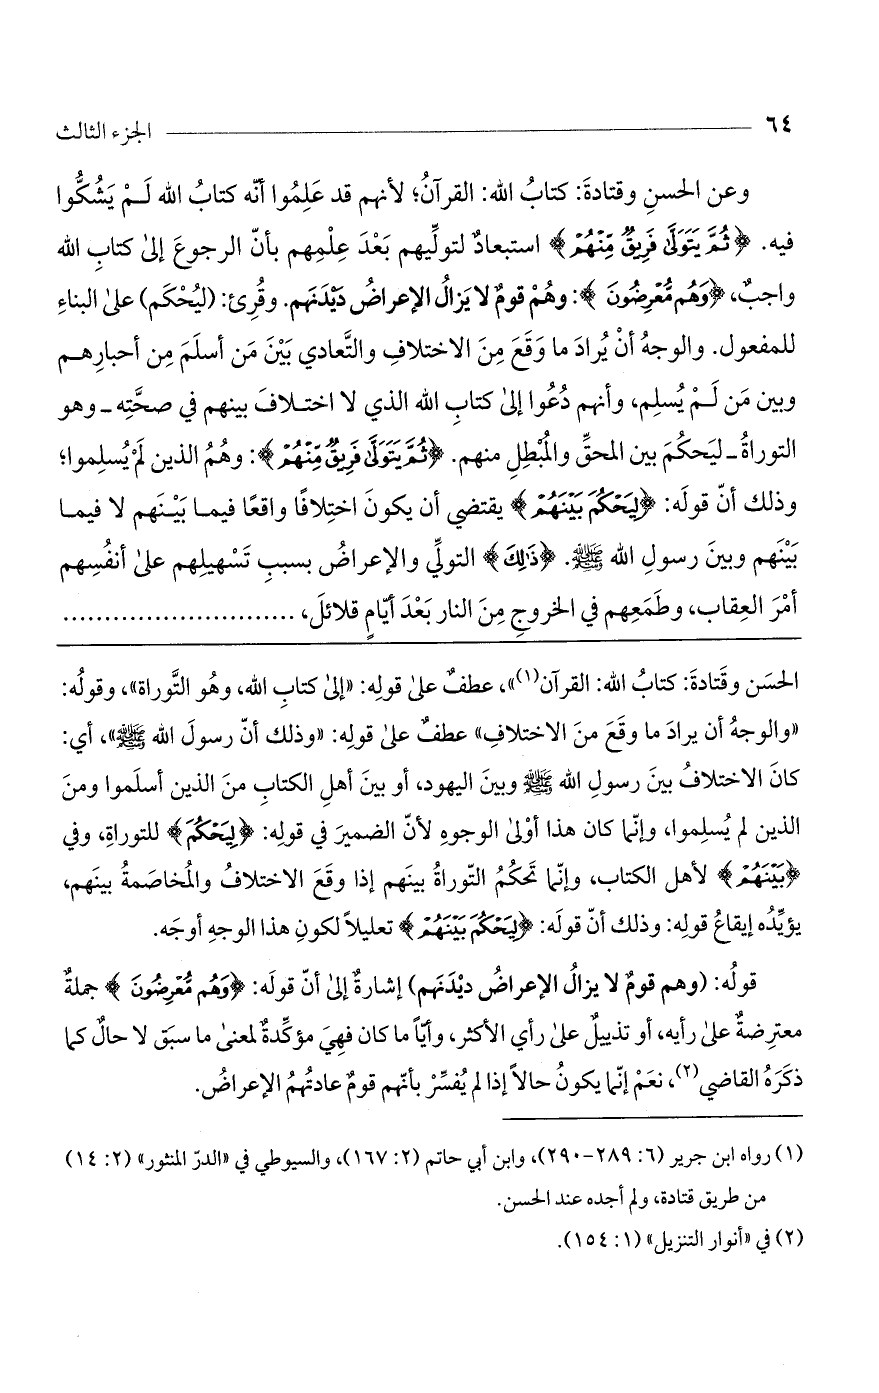 ٦٤ الجزء الثالث
وعن الحسنِ وقتادةَ: كتابُ الله: القرآنُ؛ لأنهم قد عَلِمُوا أنّه كتابُ الله لَـمْ يَشُكُّوا
فيه. ﴿ثُمَّ يَتَوَلَّىٰ فَرِيقٌ مِّنْهُمْ﴾ استبعادٌ لتولِّيهم بَعْدَ عِلْمِهم بأنّ الرجوعَ إلىٰ كتابِ الله
واجبٌ، ﴿وَهُم مُّعْرِضُونَ﴾: وهُمْ قومٌ لا يَزالُ الإعراضُ دَيْدَنَهم. وقُرِئ: (ليُحْكَم) علىٰ البناءِ
للمفعول. والوجهُ أنْ يُرادَ ما وَقَعَ مِنَ الاختلافِ والتَّعادي بَيْنَ مَن أسلَمَ مِن أحبارِهـم
وبين مَن لَـمْ يُسلِم، وأنهم دُعُوا إلىٰ كتابِ الله الذي لا اختـلافَ بينهم في صحَّتِه ـ وهو
التوراةُ ـ ليَحكُمَ بين المحقِّ والمُبْطِلِ منهم. ﴿ثُمَّ يَتَوَلَّىٰ فَرِيقٌ مِّنْهُمْ﴾: وهُمُ الذين لَمْ يُسلِموا؛
وذلك أنّ قولَه: ﴿لِيَحْكُمَ بَيْنَهُمْ﴾ يقتضي أن يكونَ اختِلافًا واقعًا فيمـا بَيْـنَهم لا فيمـا
بَيْنَهم وبينَ رسولِ الله ﷺ. ﴿ذَٰلِكَ﴾ التولِّي والإعراضُ بسببِ تَسْهيلِهم علىٰ أنفُسِهم
أمْرَ العِقاب، وطَمَعِهم في الخروجِ مِنَ النار بَعْدَ أيّامٍ قلائلَ، ............................
الحسَن وقَتادةَ: كتابُ الله: القرآن(١)»، عطفٌ علىٰ قولِه: «إلىٰ كتابِ الله، وهُو التَّوراة»، وقولُه:
«والوجهُ أن يرادَ ما وقَعَ منَ الاختلافِ» عطفٌ علىٰ قولِه: «وذلك أنّ رسولَ الله ﷺ»، أي:
كانَ الاختلافُ بينَ رسولِ الله ﷺ وبينَ اليهود، أو بينَ أهلِ الكتابِ منَ الذين أسلَموا ومنَ
الذين لم يُسلِموا، وإنّما كان هذا أوْلىٰ الوجوهِ لأنّ الضميرَ في قولِه: ﴿لِيَحْكُمَ﴾ للتوراةِ، وفي
﴿بَيْنَهُمْ﴾ لأهل الكتاب، وإنّما تَحكُمُ التّوراةُ بينَهم إذا وقَعَ الاختلافُ والمُخاصَمةُ بينَهم،
يؤيِّدُه إيقاعُ قولِه: وذلك أنّ قولَه: ﴿لِيَحْكُمَ بَيْنَهُمْ﴾ تعليلاً لكونِ هذا الوجهِ أوجَه.
قولُه: (وهم قومٌ لا يزالُ الإعراضُ ديْدَنَهم) إشارةٌ إلىٰ أنّ قولَه: ﴿وَهُم مُّعْرِضُونَ﴾ جملةٌ
معترِضةٌ علىٰ رأيه، أو تذييلٌ علىٰ رأي الأكثر، وأيّاً ما كان فهِيَ مؤكِّدةٌ لمعنىٰ ما سبَق لا حالٌ كما
ذكَرَهُ القاضي(٢)، نعَمْ إنّما يكونُ حالاً إذا لم يُفسِّرْ بأنّهم قومٌ عادتُهمُ الإعراضُ.
(١) رواه ابن جرير (٦: ٢٨٩-٢٩٠)، وابن أبي حاتم (٢: ١٦٧)، والسيوطي في «الدرّ المنثور» (٢: ١٤)
من طريق قتادة، ولم أجده عند الحسن.
(٢) في «أنوار التنزيل» (١: ١٥٤).